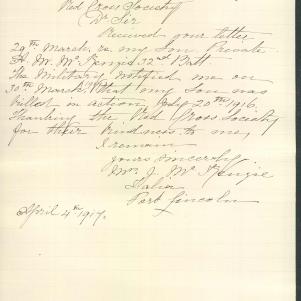 Red Cross Society
Dr Sir
Received your letter
29th March, re my Son Private
H. M. McKenzie 32nd Batt.
The Military notified me on
30th March that my Son was
killed in action July 20th 1916.
Thanking the Red Cross Society
for their kindness to me,
I remain
yours sincerely
Mrs J. McKenzie
Talia
Port Lincoln
April 4th 1917.